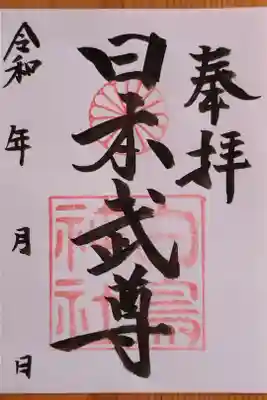 奉拝
日本武尊
令和 年 月 日